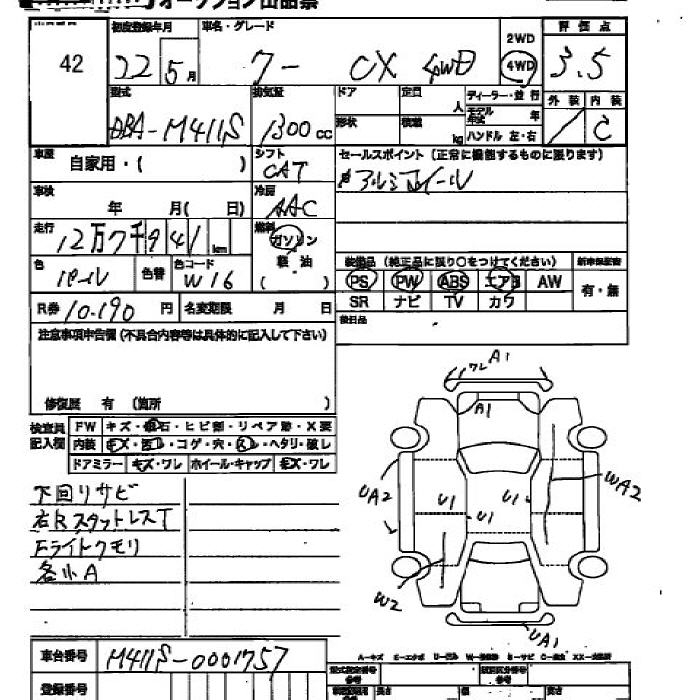 オークション出品票
42
初度登録年月 車名・グレード 2WD 評価点
22 5月 クー CX 4WD 4WD 3.5
型式 排気量 ドア 定員 人 ディーラー・並行 外装 内装
DBA-M411S 1300cc 形状 積載 kg モデル年式 年 C
ハンドル 左・右
車歴 自家用・( ) シフト CAT セールスポイント(正常に機能するものに限ります)
アルミホイール
車検 年 月( 日) 冷房 AAC
走行 12万7千941km 燃料 ガソリン
軽油
( )
装備品(純正品に限り○をつけてください) 新車保証書
色 パール 色替 色コード W16 PS PW ABS エアB AW 有・無
R券 10.190円 名変期限 月 日 SR ナビ TV カワ
注意事項申告欄(不具合内容等は具体的に記入して下さい) 後日品
修復歴 有 (箇所
検査員記入欄 FW キズ・飛石・ヒビ割・リペア跡・X要
内装 キズ・汚れ・コゲ・穴・スレ・ヘタリ・破レ
ドアミラー キズ・ワレ ホイール・キャップ キズ・ワレ
下回リサビ
右RスタットレスT
Fライトクモリ
各小A
ワレ A1
A1
UA2
U1
U1
U1
WA2
W2
UA1
車台番号 M411S-0001757
登録番号
A-キズ E-エクボ U-ヘコミ
型式指定番号 類別区分番号
長さ 幅 高さ